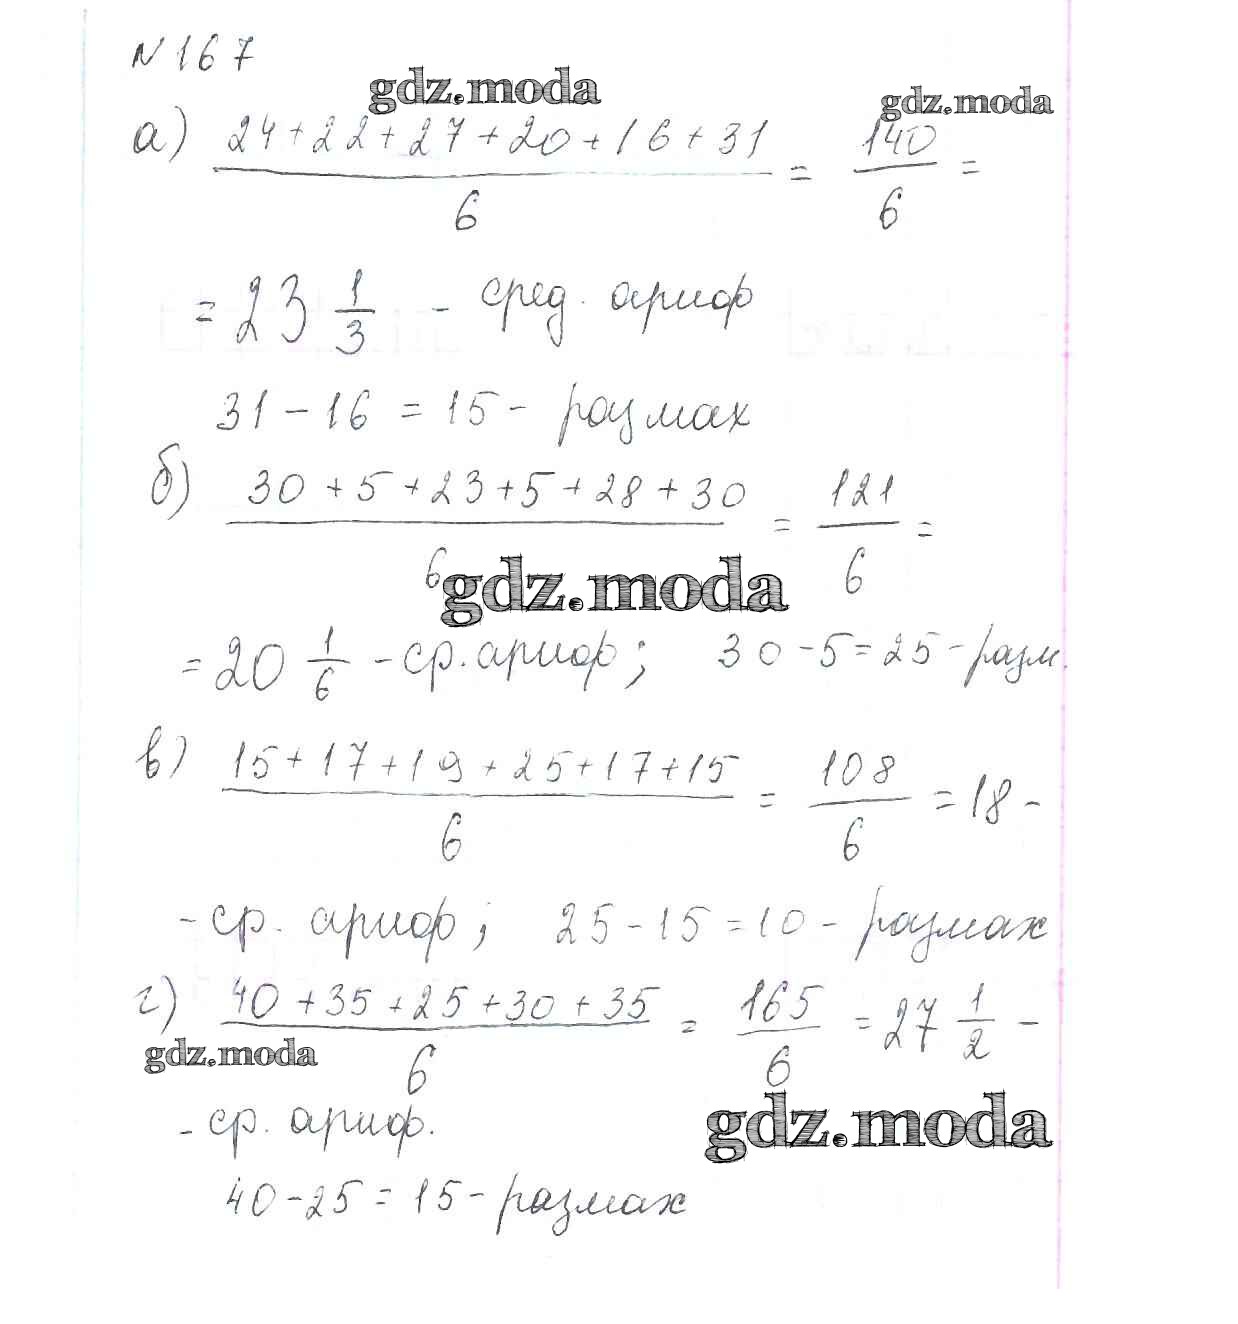 N 167
gdz.moda
gdz.moda
а) 24+22+27+20+16+31 / 6 = 140 / 6 =
= 23 1/3 - сред. ариф
31 - 16 = 15 - размах
б) 30+5+23+5+28+30 / 6 = 121 / 6 =
gdz.moda
= 20 1/6 - ср. ариф; 30-5=25-разм.
в) 15+17+19+25+17+15 / 6 = 108 / 6 = 18 -
- ср. ариф; 25-15=10 - размах
г) 40+35+25+30+35 / 6 = 165 / 6 = 27 1/2 -
gdz.moda
- ср. ариф.
gdz.moda
40-25=15-размах